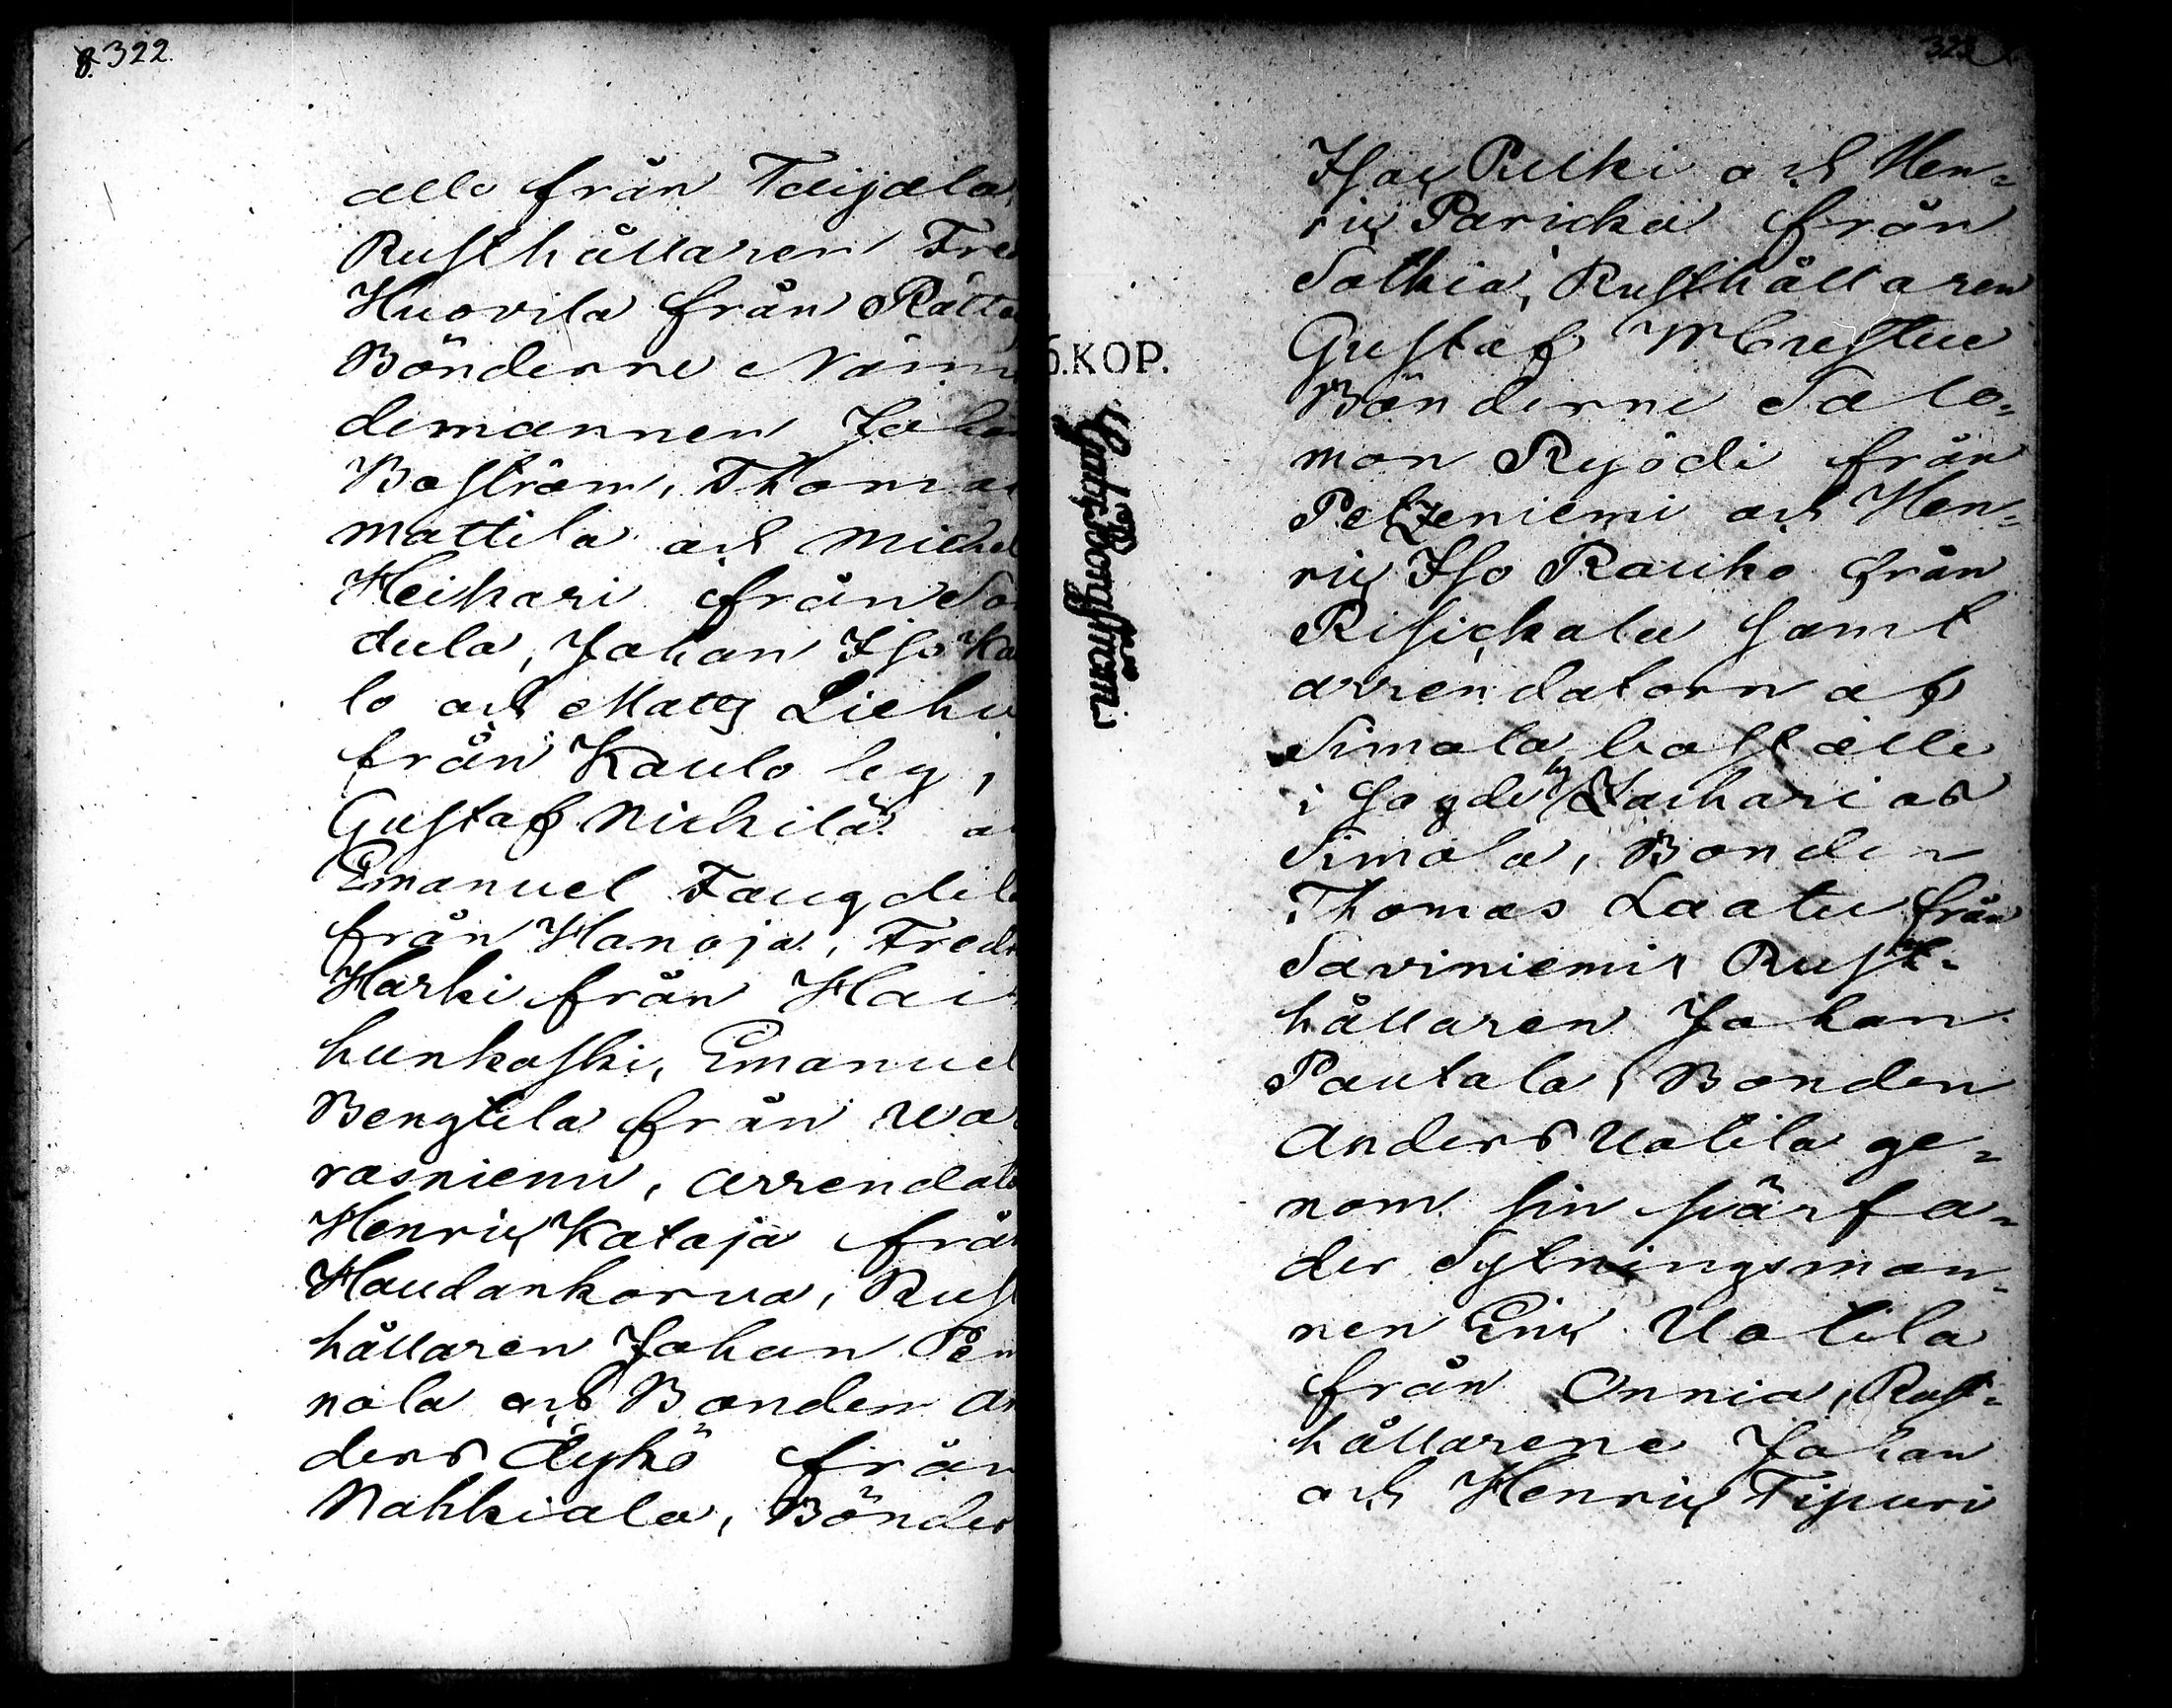 8. 322.
alle från Taijala,
Rusthållaren Fre
Huovila från Rätta
Bönderne Näm
demannen Joha
Boström, Thomas
Mattila och Michel
Heikari från So
dula, Johan Iso Ka
lo och Matts Liehu
från Kaulo by,
Gustaf Nickilä a
Emanuel Faugdila
från Hanoja, Fredr
Harki från Hai
hunkoski, Emanuel
Bengtila från Wa
rasniemi, arrendato
Henric Kataja från
Haudankorva, Rust
hållaren Johan Pen
nola och Bonden An
ders Äykö från
Nahkiala, Bönder
323
Isac Pulki och Hen=
ric Paricka från
Sathia, Rusthållaren
Gustaf
Bönderne Salo=
mon Ryödi från
Peltzeniemi och Hen=
ric Iso Rauko från
Risickala samt
arrendatorn af
Simola boställe
i Sagdu by Zacharias
Simola, Bonden
Thomas Laatu från
Saviniemi, Rust=
hållaren Johan
Pautala, Bonden
Anders Uotila ge=
nom sin svärfa=
der Sytningsman=
nen Eric Uotila
från Onnia, Rust=
hållarene Johan
och Henric Tipuri
б.KOP.